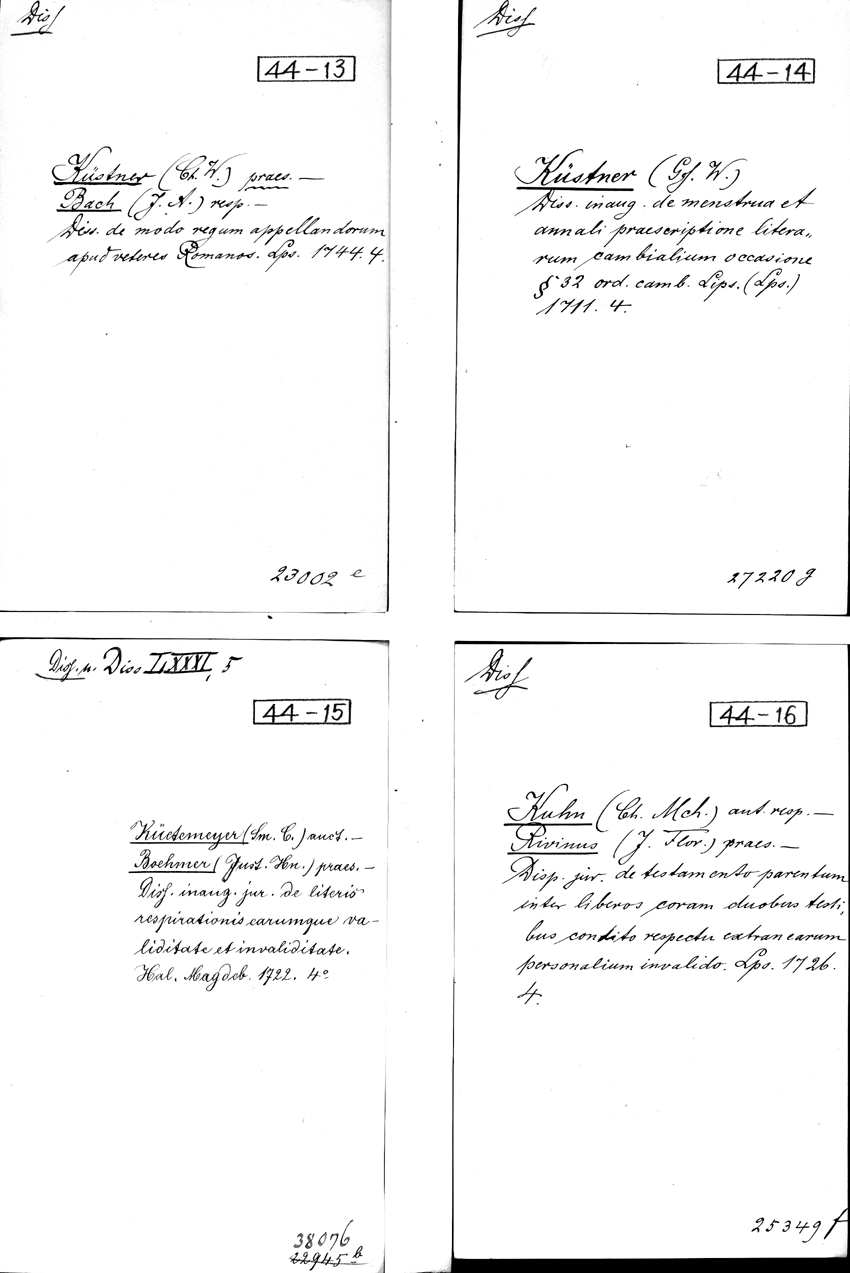 Diss
44-13
Küstner (Ch. W.) praes. —
Bach (J. A.) resp. —
Diss. de modo regum appellandorum
apud veteres Romanos. Lps. 1744. 4.
23002 e
Diss
44-14
Küstner (Gf. W.)
Diss. inaug. de menstrua et
annali praescriptione litera„
rum cambialium occasione
§ 32 ord. camb. Lips. (Lps.)
1711. 4.
27220 g
Diss. u. Diss LXXXI, 5
44-15
Küstemeyer (Sm. C.) auct. —
Boehmer (Just. Hn.) praes. —
Diss. inaug. jur. de literis
respirationis earumque va-
liditate et invaliditate.
Hal. Magdeb. 1722. 4°
38076
22945 b
Diss
44-16
Kuhn (Ch. Mch.) aut. resp. —
Rivinus (J. Flor.) praes. —
Disp. jur. de testamento parentum
inter liberos coram duobus testi„
bus condito respectu extranearum
personalium invalido. Lps. 1726.
4.
25349 f